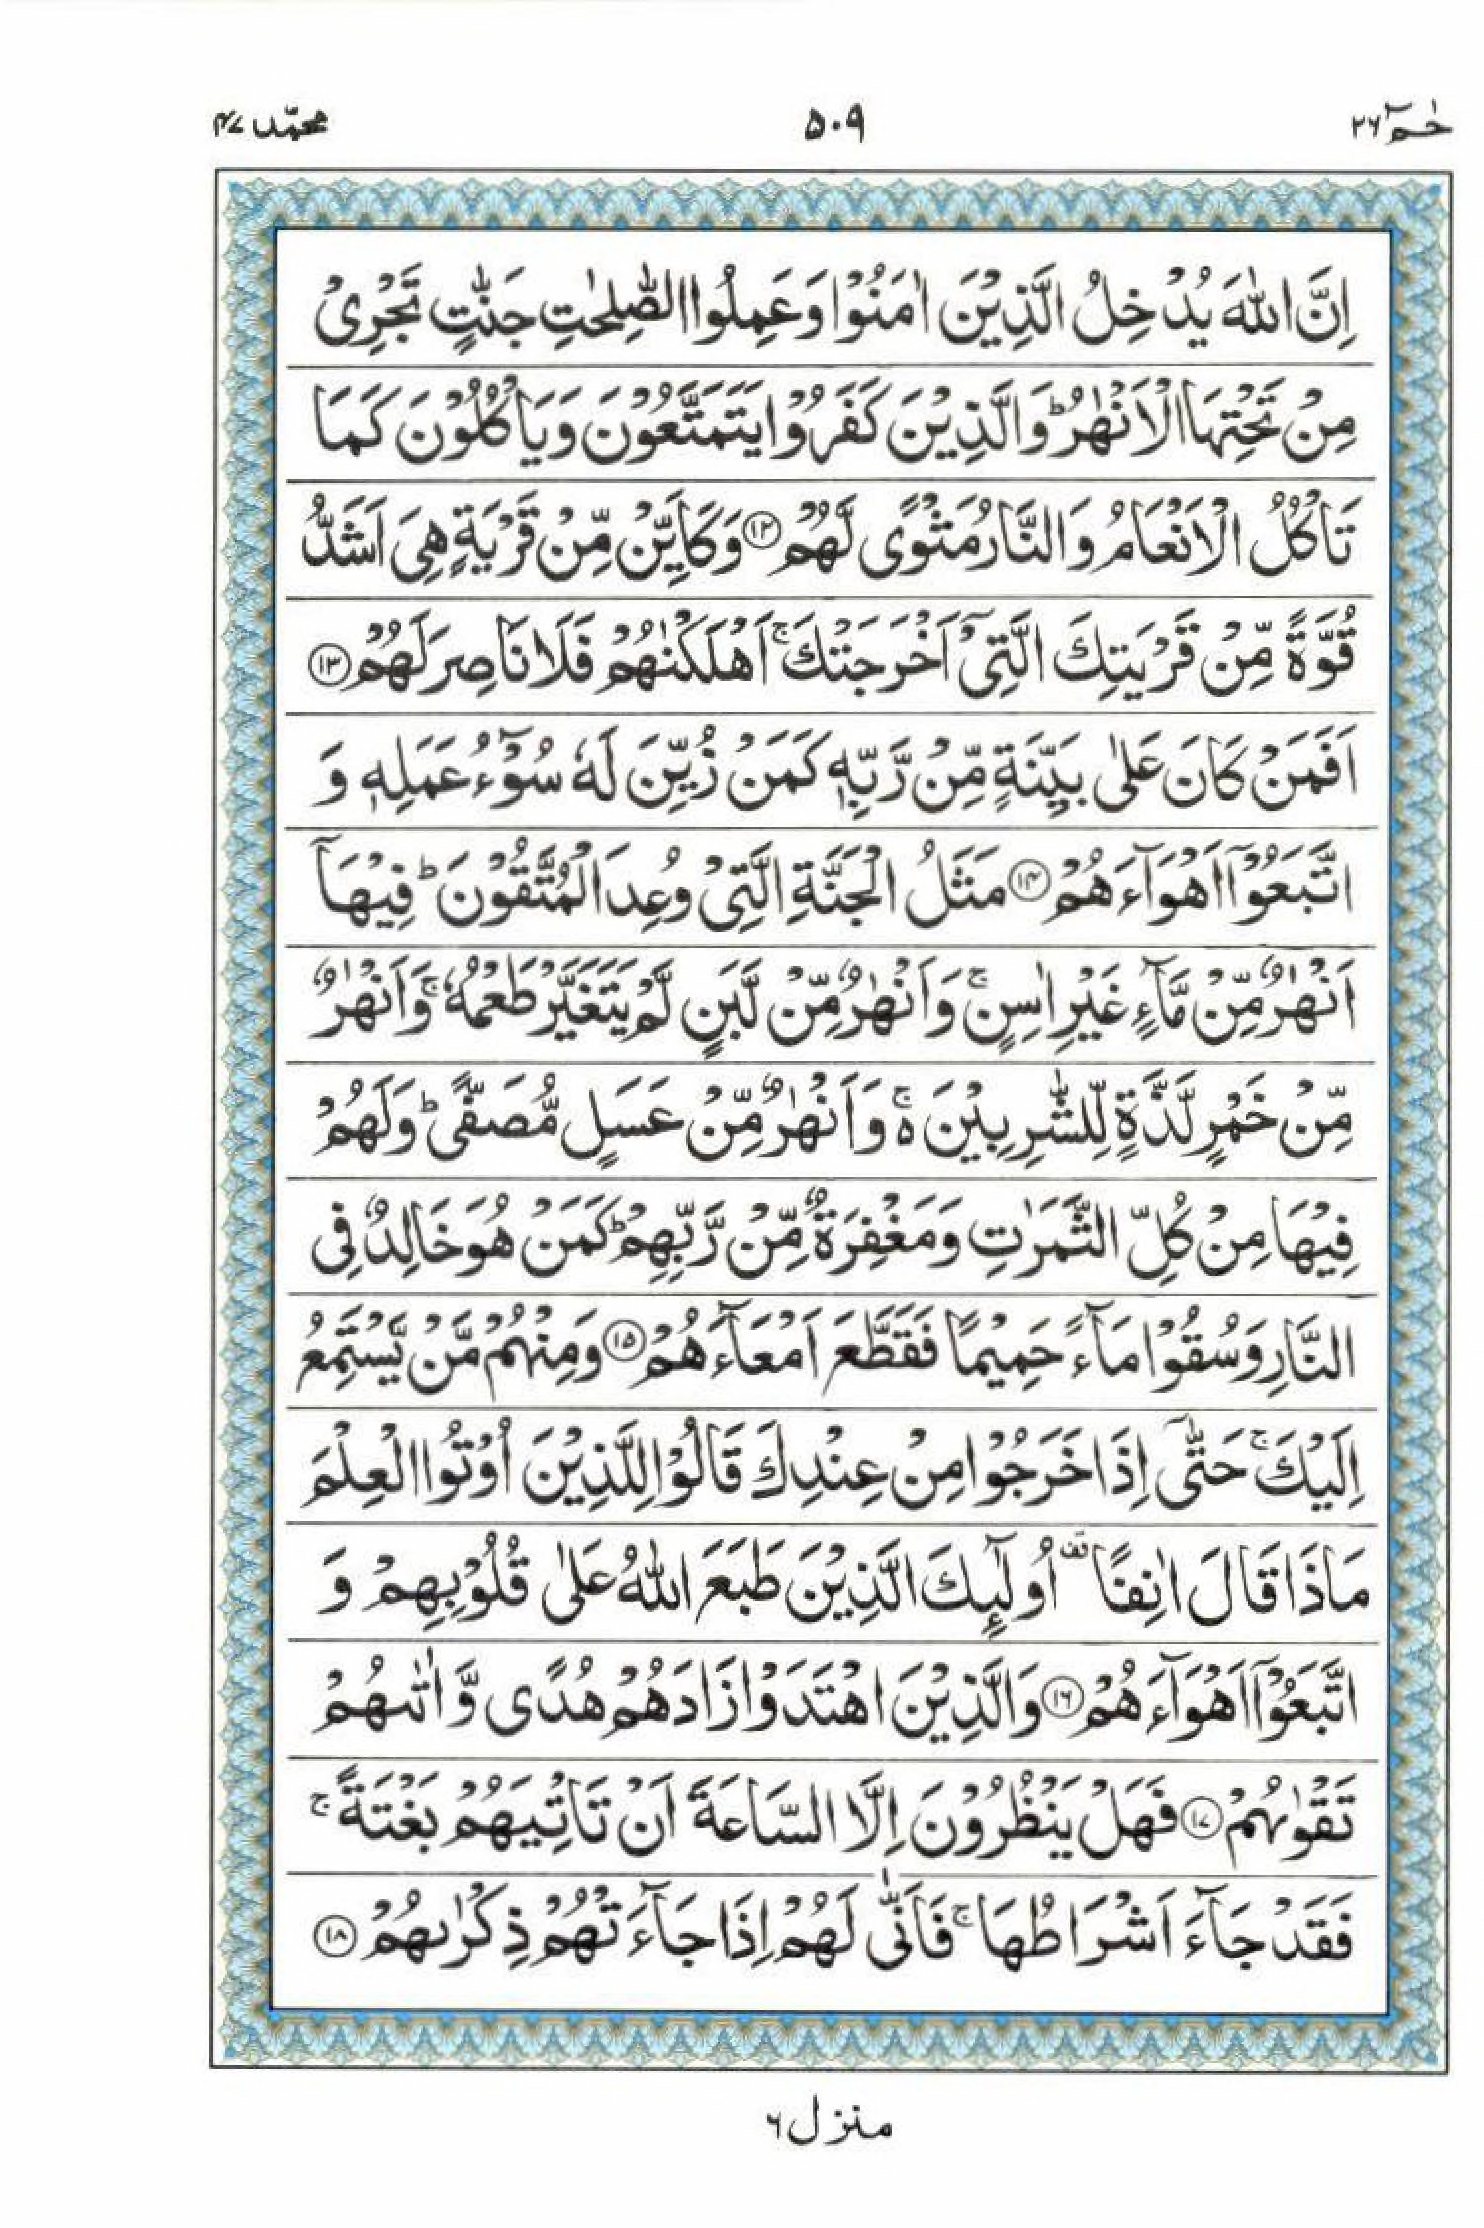 حٰمٓ ۲۶
۵۰۹
محمّد ۴۷
اِنَّ اللّٰهَ يُدْخِلُ الَّذِيْنَ اٰمَنُوْا وَعَمِلُوا الصّٰلِحٰتِ جَنّٰتٍ تَجْرِيْ
مِنْ تَحْتِهَا الْاَنْهٰرُ ؕ وَالَّذِيْنَ كَفَرُوْا يَتَمَتَّعُوْنَ وَيَاْكُلُوْنَ كَمَا
تَاْكُلُ الْاَنْعَامُ وَالنَّارُ مَثْوًى لَّهُمْ ۝۱۲ وَكَاَيِّنْ مِّنْ قَرْيَةٍ هِيَ اَشَدُّ
قُوَّةً مِّنْ قَرْيَتِكَ الَّتِيْٓ اَخْرَجَتْكَ ۚ اَهْلَكْنٰهُمْ فَلَا نَاصِرَ لَهُمْ ۝۱۳
اَفَمَنْ كَانَ عَلٰى بَيِّنَةٍ مِّنْ رَّبِّهٖ كَمَنْ زُيِّنَ لَهٗ سُوْٓءُ عَمَلِهٖ وَ
اتَّبَعُوْٓا اَهْوَآءَهُمْ ۝۱۴ مَثَلُ الْجَنَّةِ الَّتِيْ وُعِدَ الْمُتَّقُوْنَ ؕ فِيْهَآ
اَنْهٰرٌ مِّنْ مَّآءٍ غَيْرِ اٰسِنٍ ۚ وَاَنْهٰرٌ مِّنْ لَّبَنٍ لَّمْ يَتَغَيَّرْ طَعْمُهٗ ۚ وَاَنْهٰرٌ
مِّنْ خَمْرٍ لَّذَّةٍ لِّلشّٰرِبِيْنَ ۬ۚ وَاَنْهٰرٌ مِّنْ عَسَلٍ مُّصَفًّى ؕ وَلَهُمْ
فِيْهَا مِنْ كُلِّ الثَّمَرٰتِ وَمَغْفِرَةٌ مِّنْ رَّبِّهِمْ ؕ كَمَنْ هُوَ خَالِدٌ فِي
النَّارِ وَسُقُوْا مَآءً حَمِيْمًا فَقَطَّعَ اَمْعَآءَهُمْ ۝۱۵ وَمِنْهُمْ مَّنْ يَّسْتَمِعُ
اِلَيْكَ ۚ حَتّٰٓى اِذَا خَرَجُوْا مِنْ عِنْدِكَ قَالُوْا لِلَّذِيْنَ اُوْتُوا الْعِلْمَ
مَاذَا قَالَ اٰنِفًا ۫ اُولٰٓئِكَ الَّذِيْنَ طَبَعَ اللّٰهُ عَلٰى قُلُوْبِهِمْ وَ
اتَّبَعُوْٓا اَهْوَآءَهُمْ ۝۱۶ وَالَّذِيْنَ اهْتَدَوْا زَادَهُمْ هُدًى وَّاٰتٰىهُمْ
تَقْوٰىهُمْ ۝۱۷ فَهَلْ يَنْظُرُوْنَ اِلَّا السَّاعَةَ اَنْ تَاْتِيَهُمْ بَغْتَةً ۚ
فَقَدْ جَآءَ اَشْرَاطُهَا ۚ فَاَنّٰى لَهُمْ اِذَا جَآءَتْهُمْ ذِكْرٰىهُمْ ۝۱۸
منزل ۶